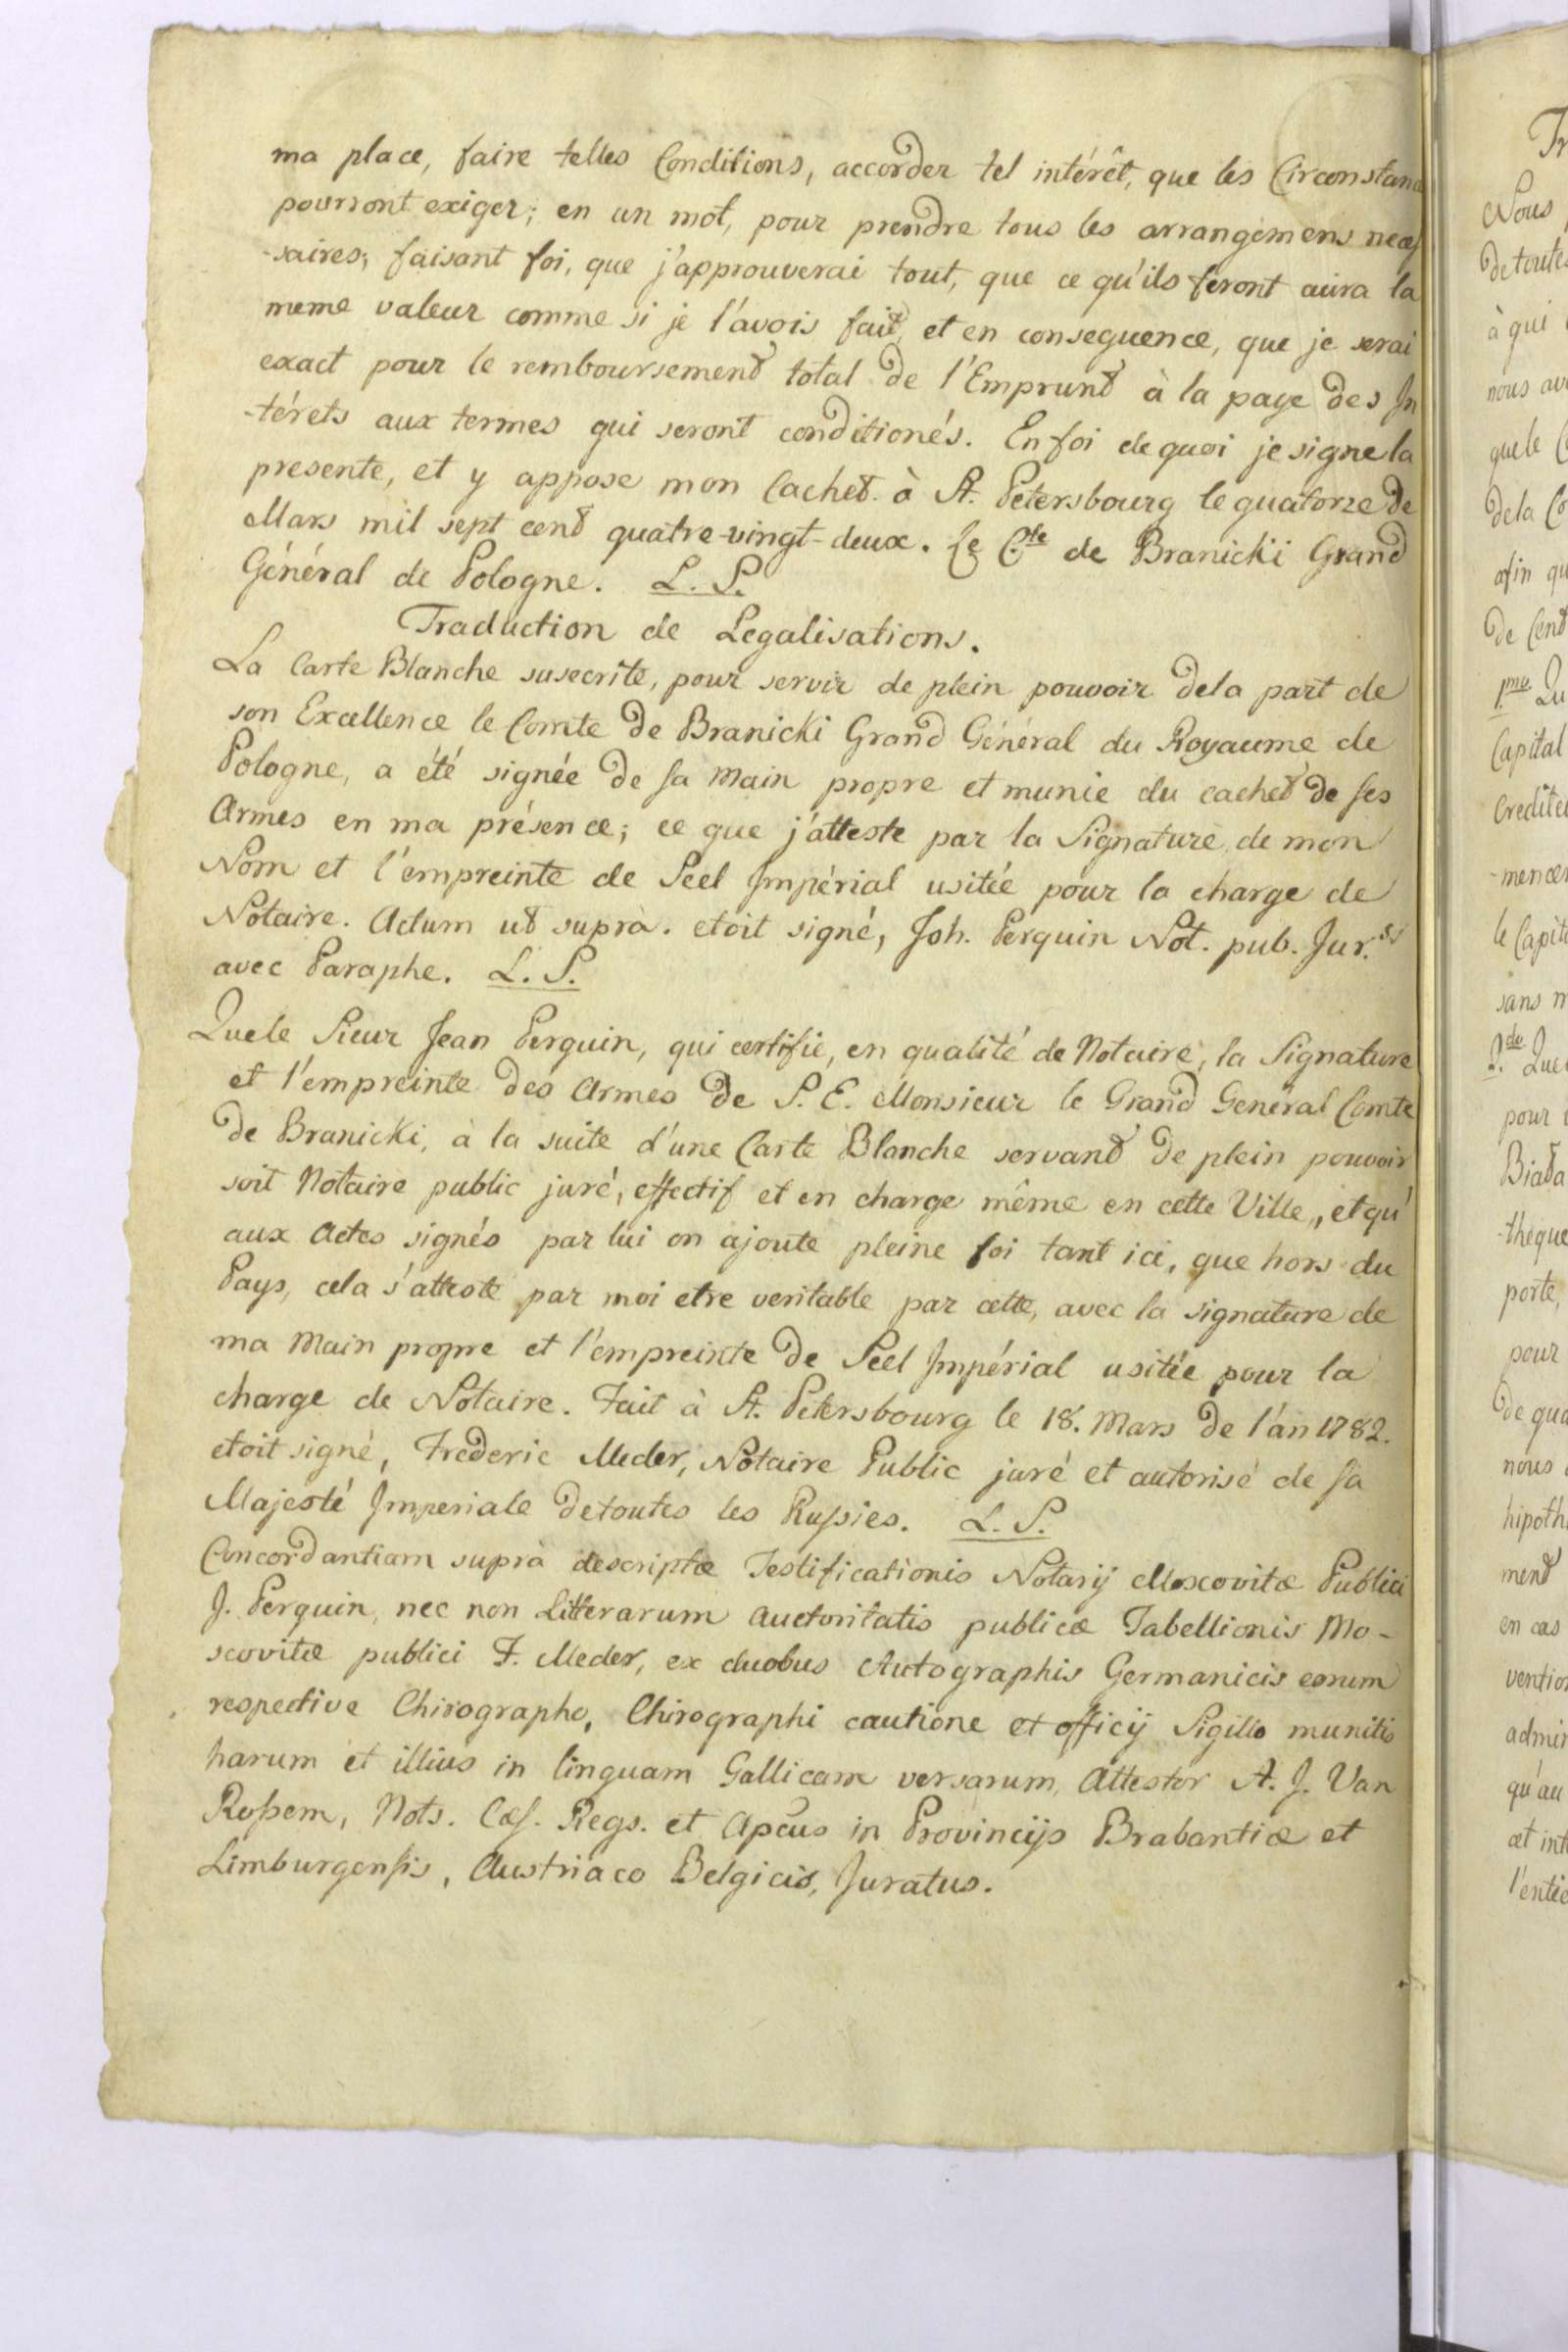 ma place, faire telles Conditions, accorder tel intérêt, que les Circonstanc
pourront exiger; en un mot, pour prendre tous les arrangemens neces
-saires; faisant foi, que j'approuverai tout, que ce qu'ils feront aura la
meme valeur comme si je l'avois fait, et en consequence, que je serai
exact pour le remboursement total de l'Emprunt à la paye des In
-térets aux termes qui seront conditionés. En foi de quoi je signe la
presente, et y appose mon Cachet. à St. Petersbourg le quatorze de
Mars mil sept cent quatre-vingt-deux. Le Cte de Branicki Grand
Général de Pologne. L. S.
Traduction de Legalisations.
La Carte Blanche susecrite, pour servir de plein pouvoir dela part de
son Excellence le Comte de Branicki Grand Général du Royaume de
Pologne, a été signée de sa main propre et munie du cachet de ses
Armes en ma présence; ce que j'atteste par la Signature de mon
Nom et l'empreinte de Seel Impérial usitée pour la charge de
Notaire. Actum ut suprà. etoit signé, Joh. Perquin Not. pub. Jur.ss
avec Paraphe. L. S.
Que le Sieur Jean Perquin, qui certifie, en qualité de Notaire, la Signature
et l'empreinte des Armes de S. E. Monsieur le Grand General Comte
de Branicki, à la suite d'une Carte Blanche servant de plein pouvoir
soit Notaire public juré, effectif et en charge même en cette Ville, et qu'
aux Actes signés par lui on ajoute pleine foi tant ici, que hors du
Pays, cela s'atteste par moi etre veritable par cette, avec la signature de
ma Main propre et l'empreinte de Seel Impérial usitée pour la
charge de Notaire. Fait à St. Petersbourg le 18. Mars de l'an 1782.
etoit signé, Frederic Meder, Notaire Public juré et autorisé de sa
Majesté Imperiale de toutes les Russies. L. S.
Concordantiam suprà descriptæ Testificationis Notarij Moscovitæ Publici
J. Perquin, nec non Litterarum auctoritatis publicæ Tabellionis Mo-
scovitæ publici F. Meder, ex duobus Autographis Germanicis eorum
respective Chirographo, Chirographi cautione et officij Sigillo munitis
harum et illius in linguam Gallicam versarum, Attestor A. J. Van
Rossem, Nots. Cæs. Regs. et Apcus in Provincijs Brabantiæ et
Limburgensis, Austriaco Belgicis, Juratus.
Tr
Nous
de toutes
à qui
nous av
que le C
dela Co
afin qu
de Cent
1.mo Qu
Capital
Credite
-mencer
le Capita
sans m
2.do Que
pour
Biata
-theque
porte,
pour
de qua
nous
hipoth
ment
en cas
vention
admin
qu'au
et int
l'entie